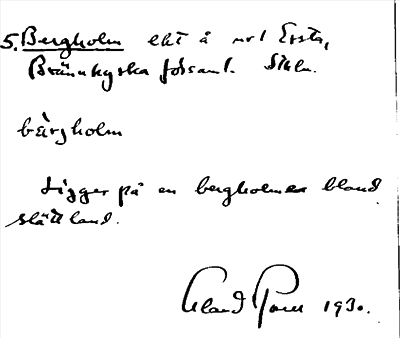 5. Bergholm lht å nr 1 Ersta,
Brännkyrka församl. Sthlm.
bärgholm
Ligger på en bergholme bland
slättland.
1930.